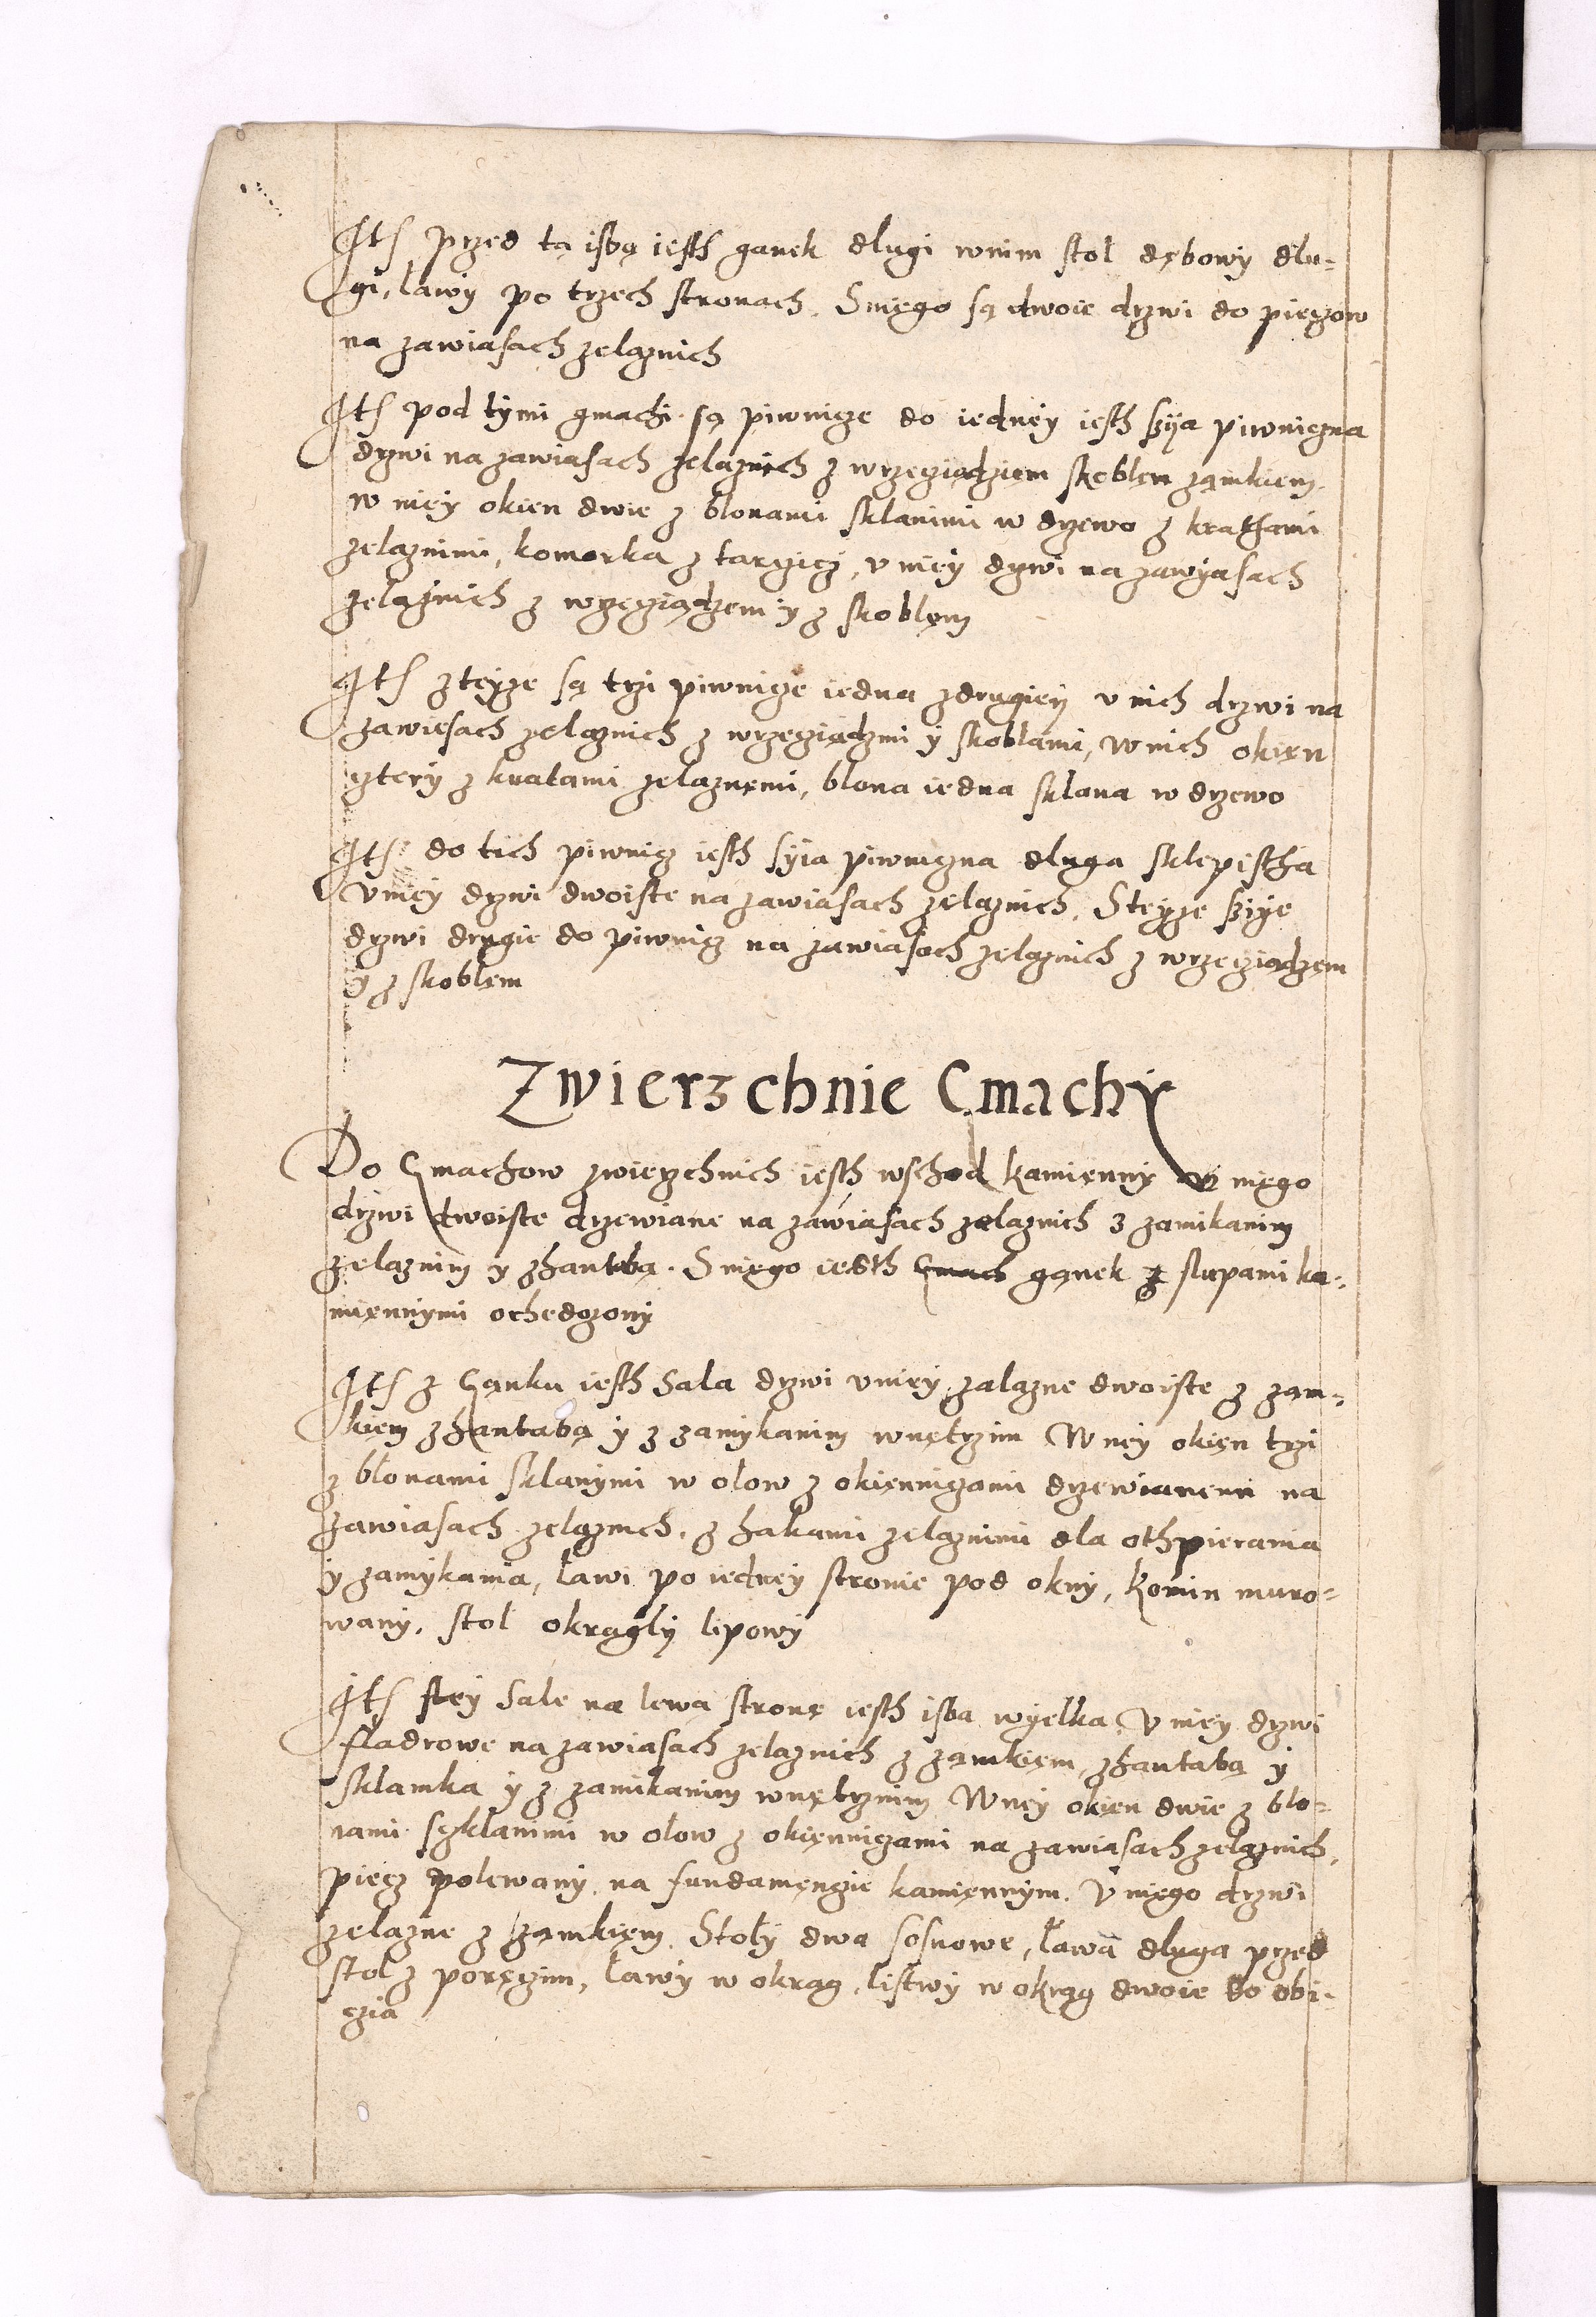 Its przed tą isbą iesth ganek dlugi wnim stol dębowy dlu-
gi, lawy po trzech stronach. Snięgo są dwoie drzwi do pieczow
na zawiasach zelaznich
Its pod tymi gmachi są piwnicze do iedney iesth szyja piwniczna
drzwi na zawiasach zelaznich z wrzecziądziem skoblem zamkiem.
w niey okien dwie z blonami sklanimi w drzewo z krathami
zelaznimi, komorka z tarczicz, v niey drzwi na zawyasach
zelaznich z wrzecziądzem y z skoblem
Its zteyze są trzi piwnicze iedna zdrugiey v nich drzwi na
zawiesach zelaznich z wrzecziądzmi y skoblami, wnich okien
cztery z kratami zelaznemi, blona iedna sklana w drzewo
Its do tich piwnicz iesth syia piwniczna dluga sklepistha
vniey drzwi dwoiste na zawiasach zelaznich. Steyze szyie
drzwi drugie do piwnicz na zawiasach zelaznich z wrzecziądzem
y z skoblem
Zwierzchnie Gmachy
Do Gmachow zwierzchnich iesth wschod kamięnny v nięgo
drzwi dwoiste drzewiane na zawiasach zelaznich z zamikanim
zelaznim y zhantabą. Snięgo iesth Gmach ganek z slupami ka-
mięnnymi ochedozony
Its z Ganku iesth Sala drzwi vniey zalazne dwoiste z zam-
kiem zhantabą y z zamykanim wnętrznim Wney okien trzi
z blonami sklanymi w olow z okiennicami drzewianemi na
zawiasach zelaznich, z hakami zelaznimi dla othpierania
y zamykania, lawi po iedney stronie pod okny, Komin muro-
wany, stol okragly lipowy
Its stey Sale na lewą stronę iesth isba wyelka, V niey drzwi
fladrowe na zawiasach zelaznich z zamkięm, zhantabą y
sklamka y z zamikanim wnętrznim Wney okien dwie z blo-
nami szklanimi w olow z okięnniczami na zawiasach zelaznich,
piecz polewany na fundamęncie kamięnnym. V nięgo drzwi
zelazne z zamkięm. Stoly dwa sosnowe, lawa dluga przed
stol z poręczim, lawy w okrag, listwy w okrąg dwoie do obi-
czia